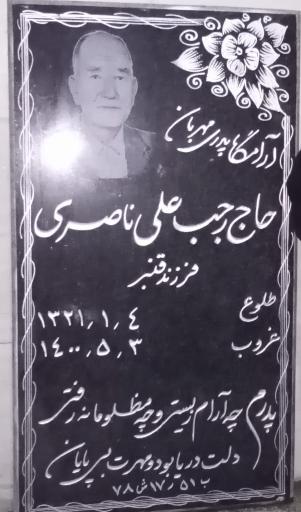 آرامگاه پدری مهربان
حاج رجب علی ناصری
فرزند قنبر
طلوع ۱۳۲۱٫۱٫۴
غروب ۱۴۰۰٫۵٫۳
پدرم چه آرام زیستی و چه مظلومانه رفتی
دلت دریا بود و مهرت بی پایان
ب ۵۱ ر ۱۷ ش ۷۸